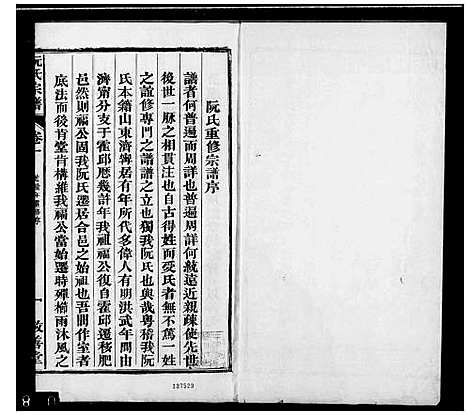 阮氏重修宗譜序
譜者何普遍而周詳也普遍周詳何統遠近親疎使先世
後世一脉之相貫注也自古得姓而受氏者無不篤一姓
之誼修專門之譜譜之立也獨我阮氏也與哉粵稽我阮
氏本籍山東濟甯居有年所代多偉人有明洪武年間由
濟甯分支于霍邱歷幾許年我祖福公復自霍邱遷移肥
邑然則福公固我阮氏遷居合邑之始祖也吾聞作室者
底法而後肯堂肯構維我福公當始遷時殫櫛雨沐風之
阮氏宗譜
卷一
一
敦善堂
137529